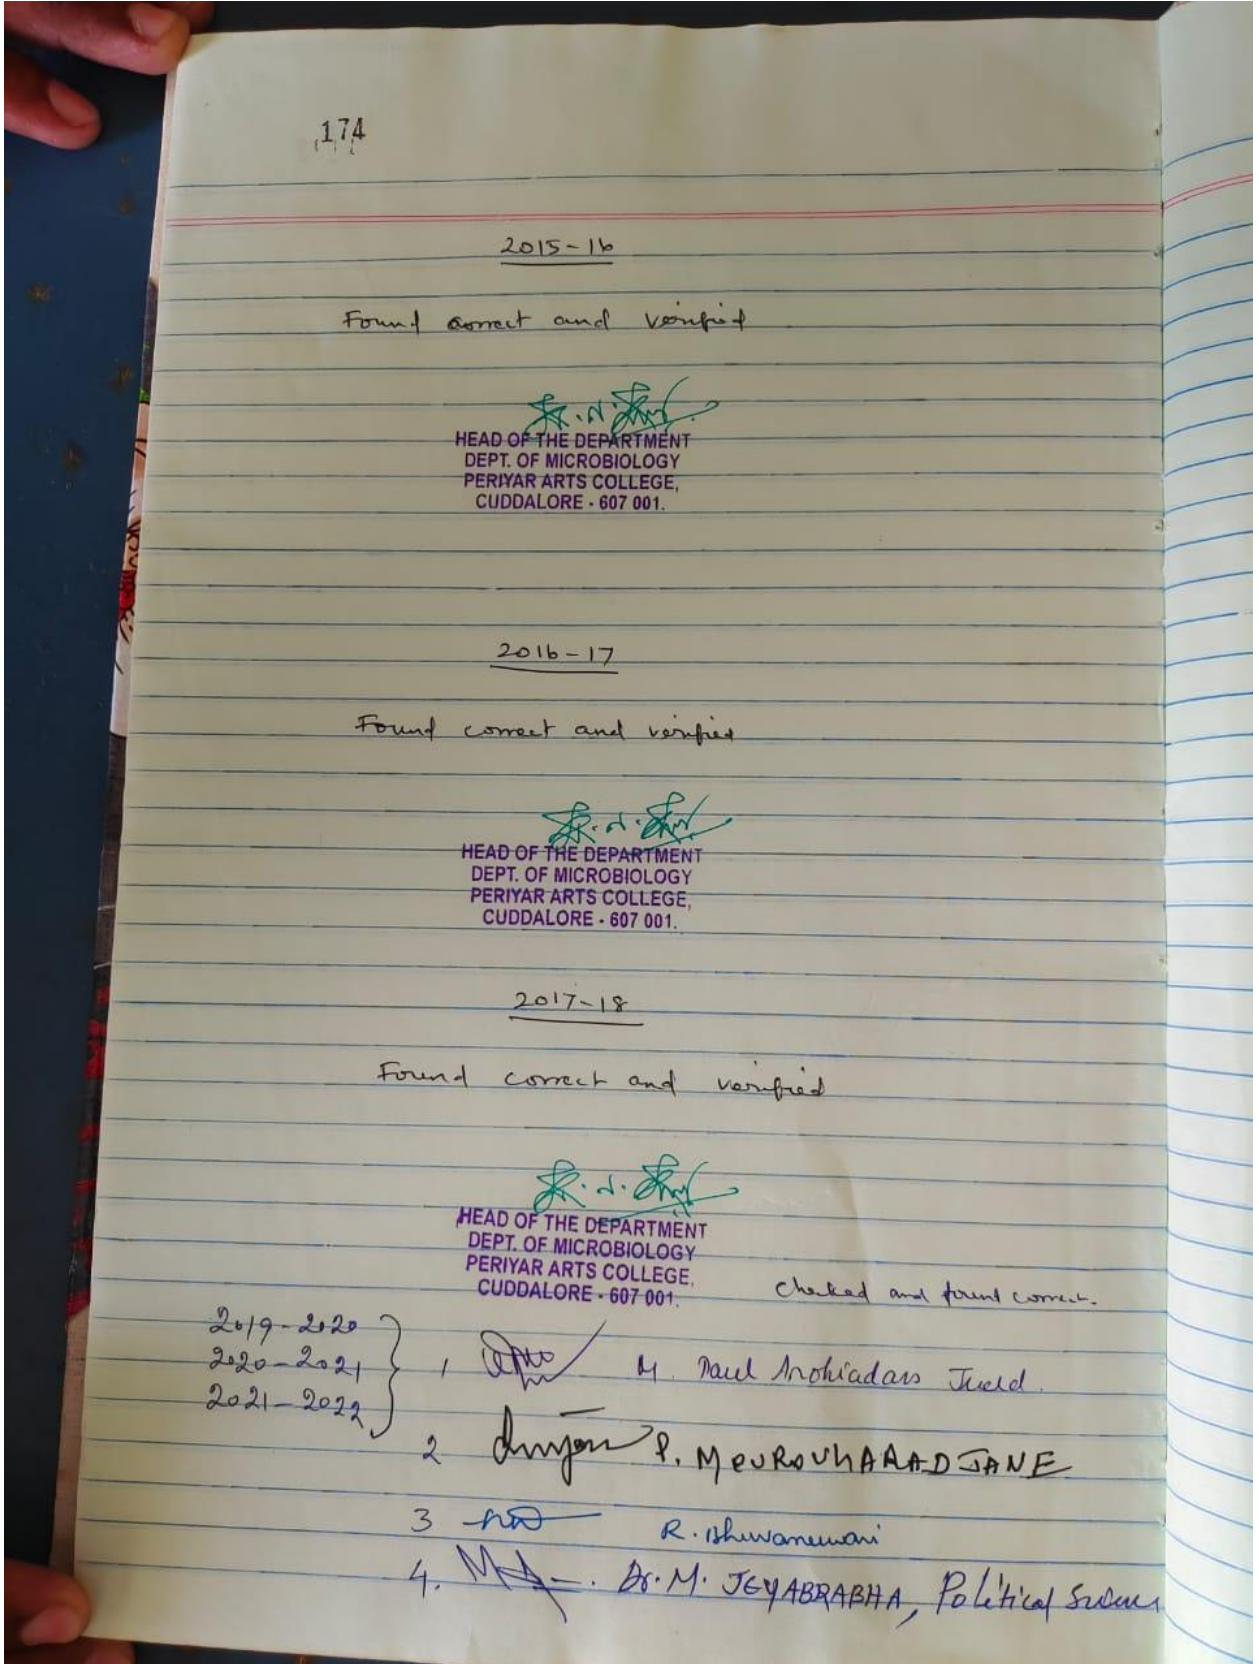 174
2015-16
Found correct and verified
HEAD OF THE DEPARTMENT
DEPT. OF MICROBIOLOGY
PERIYAR ARTS COLLEGE,
CUDDALORE - 607 001.
2016-17
Found correct and verified
HEAD OF THE DEPARTMENT
DEPT. OF MICROBIOLOGY
PERIYAR ARTS COLLEGE,
CUDDALORE - 607 001.
2017-18
Found correct and verified
HEAD OF THE DEPARTMENT
DEPT. OF MICROBIOLOGY
PERIYAR ARTS COLLEGE,
CUDDALORE - 607 001.
Checked and found correct.
2019-2020
2020-2021
2021-2022
1 M. Paul
2 P. MOUROUHARADJANE
3 R. Bhuvaneswari
4. Dr. M. JEYABRABHA, Political Science